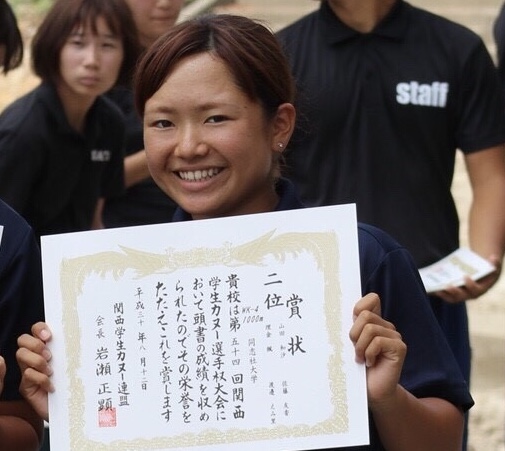 賞状
二位
同志社大学
WK-4
1000m
山田 和沙
佐藤 友香
貴校は第五十四回関西
学生カヌー選手権大会に
おいて頭書の成績を収め
られたのでその栄誉を
たたえこれを賞します
平成三十年八月十二日
関西学生カヌー連盟
会長 岩瀬正顕
staff